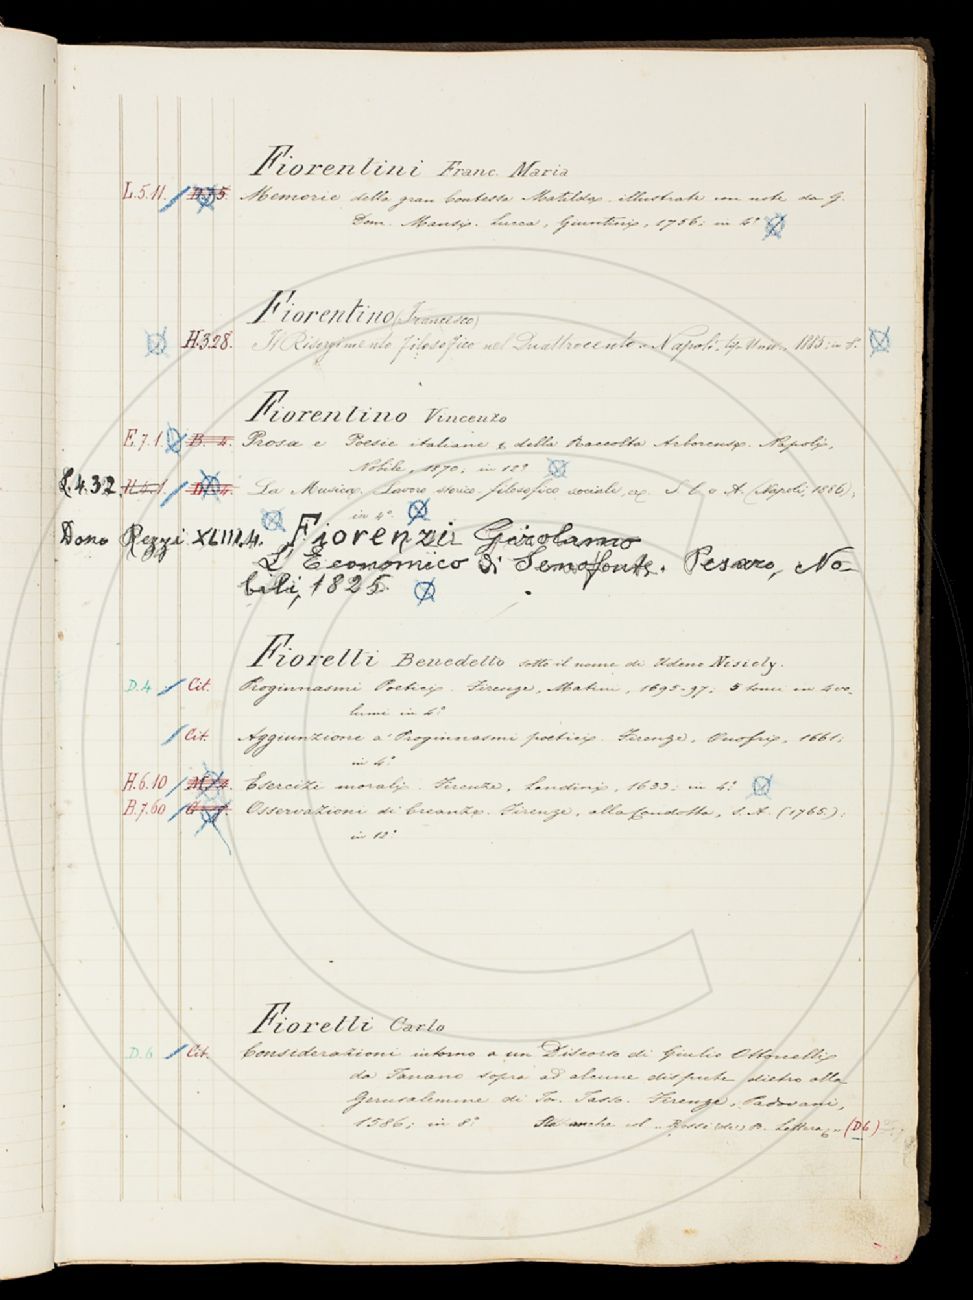 Fiorentini Franc. Maria
L.5.11. Memorie della gran Contessa Matilda. illustrate con note da G.
Dom. Mansi. Lucca, Giuntini, 1756; in 4°
Fiorentino (Francesco)
H.3.28. Il Risorgimento filosofico nel Quattrocento. Napoli, tip. Univ., 1885; in 8°.
Fiorentino Vincenzo
E.7.1. B. 4. Prosa e Poesie italiane e della Raccolta Arborense. Napoli,
Nobile, 1870; in 12°
L.4.32 H.5.1. La Musica. Lavoro storico filosofico sociale, S. L. e A. (Napoli, 1886);
in 4°.
Dono Rezzi XLIII.4. Fiorenzi Girolamo
L'Economico di Senofonte. Pesaro, No-
bili, 1825
Fioretti Benedetto sotto il nome di Udeno Nisiely.
D.4 Cit. Proginnasmi Poetici. Firenze, Matini, 1695-97; 5 tomi in 4 vo-
lumi in 4°
Cit. Aggiunzione a' Proginnasmi poetici. Firenze, Onofri, 1661;
in 4°
H.6.10 Esercizi morali. Firenze, Landini, 1633; in 4°
B.7.60 Osservazioni di Creanze. Firenze, alla Condotta, S. A. (1765);
in 12°
Fioretti Carlo
D.6 Cit. Considerazioni intorno a un Discorso di Giulio Ottonelli
da Fanano sopra ad alcune dispute dietro alla
Gerusalemme di Tor. Tasso. Firenze, Padovani,
1586; in 8° Sta anche al „ Rossi (de) B. Lettera „ (D6)